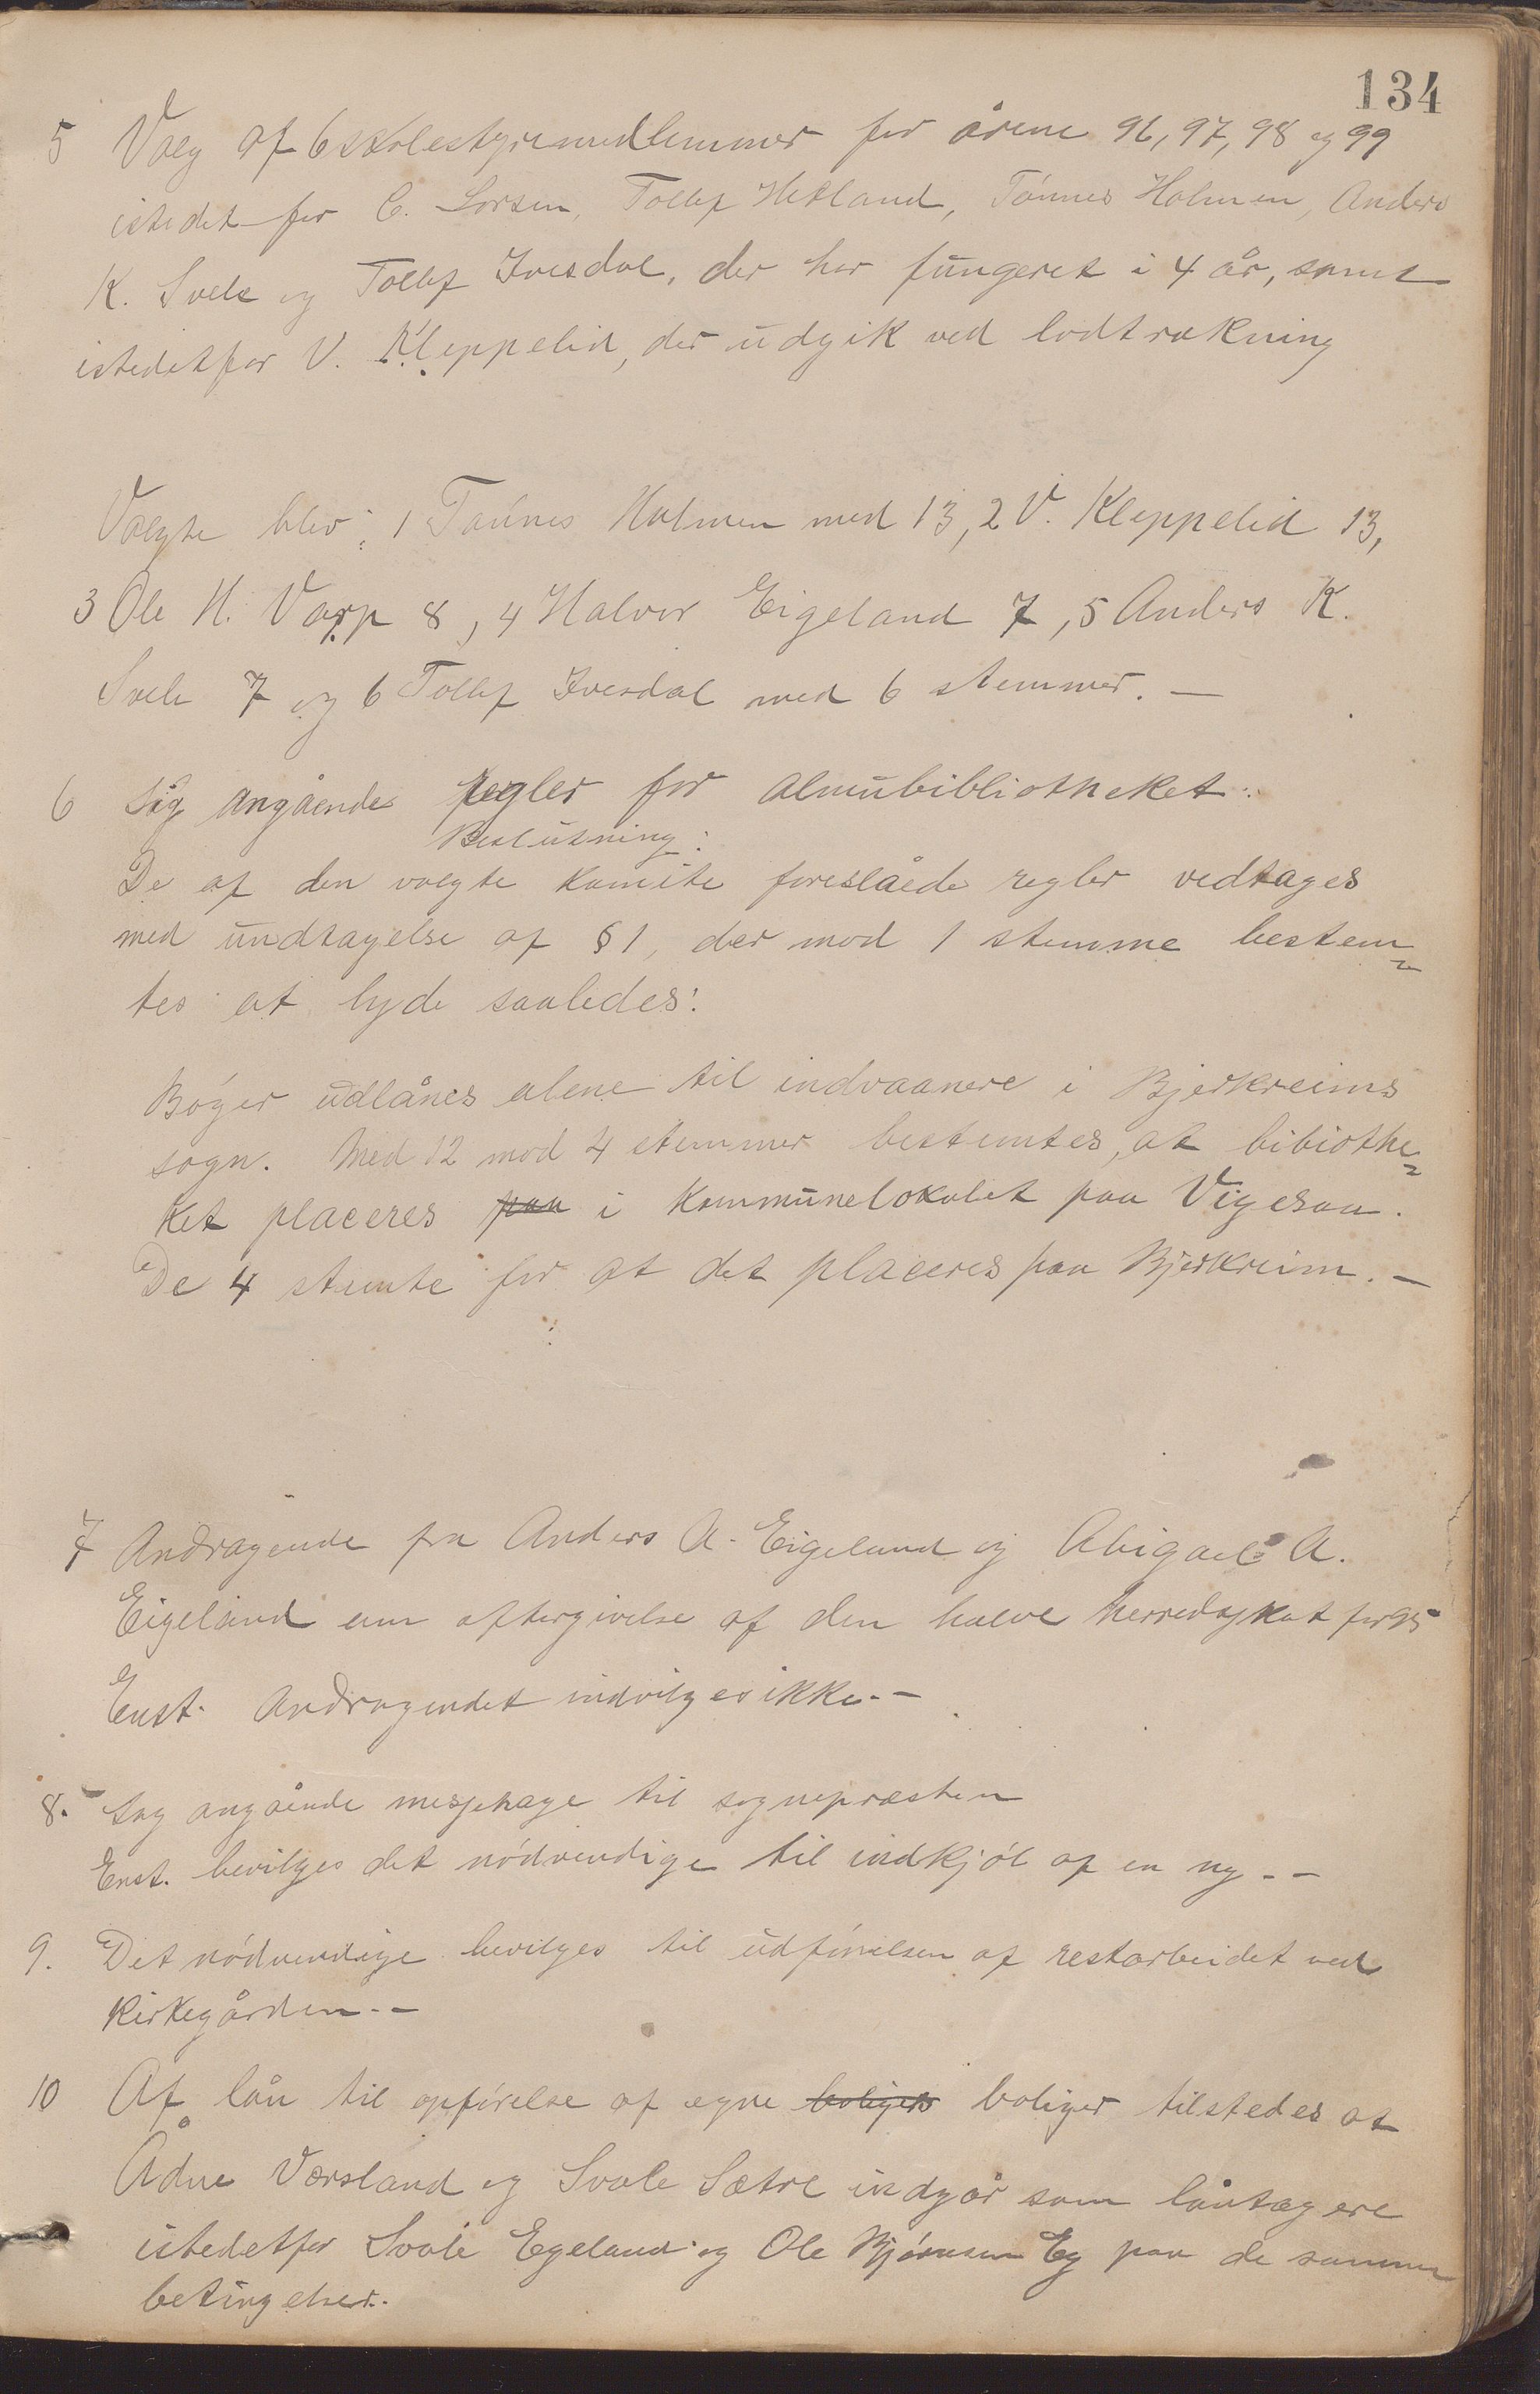 134
5 Valg af 6 skolestyremedlemmer for årene 96, 97, 98 og 99
istedet for C. Larsen, Tollef Hetland, Tónnes Holmen, Anders
K. Svele og Tollef Ivesdal, der har fungeret i 4 år, samt
istedetfor V. Kleppelid, der udgik ved lodtrækning
Valgte blev: 1 Tónnes Holmen med 13, 2 V. Kleppelid 13,
3 Ole H. Varp 8, 4 Halvor Eigeland 7, 5 Anders K.
Svele 7 og 6 Tollef Ivesdal med 6 stemmer. —
6 Sag angående regler for almubibliotheket.
Beslutning:
De af den valgte komite foreslåede regler vedtages
med undtagelse af § 1, der mod 1 stemme bestem=
tes at lyde saaledes:
Bóger udlånes alene til indvaanere i Bjerkreims
sogn. Med 12 mod 4 stemmer bestemtes, at bibiothe=
ket placeres paa i Kommunelokalet paa Vigesaa.
De 4 stemte for at det placeres paa Bjerkreim. —
7 Andragende fra Anders A. Eigeland og Abigael A.
Eigeland om eftergivelse af den halve herredsskat for 95
Enst. Andragendet indvilges ikke. —
8. Sag angående messehage til sognepræsten
Enst. bevilges det nódvendige til indkjób af en ny. —
9. Det nódvendige bevilges til udfórelsen af restarbeidet ved
Kirkegården. —
10 Af lån til opfórelse af egne boliger boliger tilstedes at
Ådne Versland og Svale Sætre indgår som låntagere
istedetfor Svale Egeland og Ole Bjórnsen Eg paa de samme
betingelser.